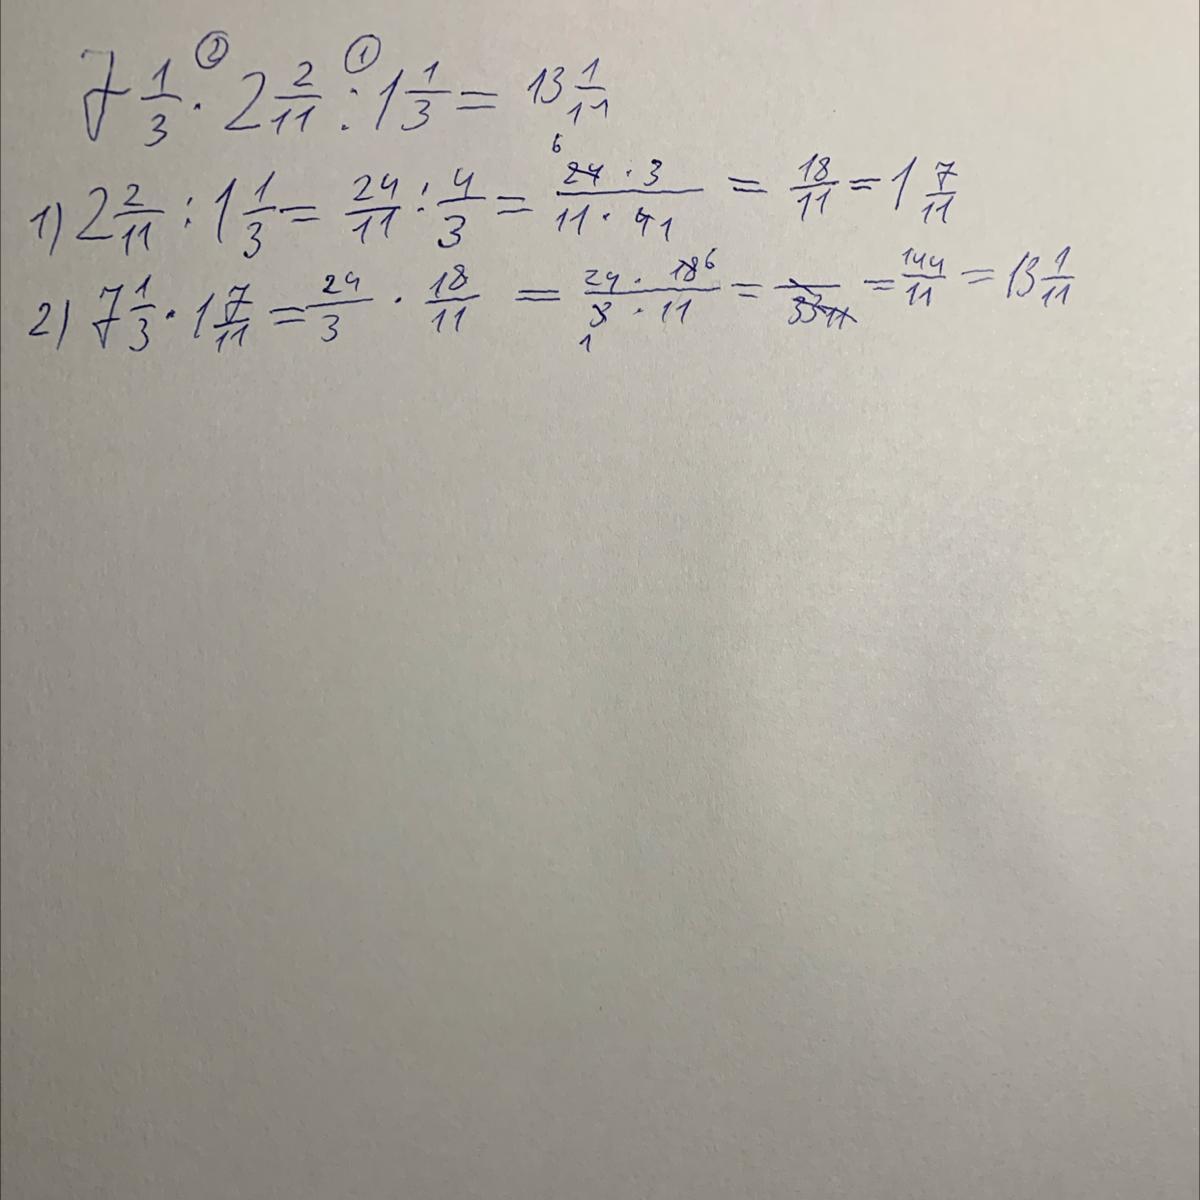 7 1/3 ② · 2 2/11 ① : 1 1/3 = 13 1/11
1) 2 2/11 : 1 1/3 = 24/11 : 4/3 = 6 24 · 3 / 11 · 4 1 = 18/11 = 1 7/11
2) 7 1/3 · 1 7/11 = 24/3 · 18/11 = 24 · 18 6 / 3 1 · 11 = = 144/11 = 13 1/11